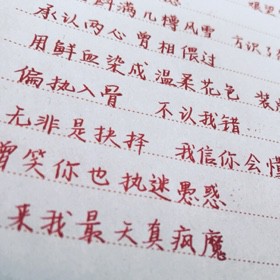 鲜满几樽风雪 方识
承认两心曾相偎过
用鲜血染成温柔花色 装
偏执入骨 不认我错
无非是抉择 我信你会懂
曾笑你也执迷愚惑
来我最天真疯魔